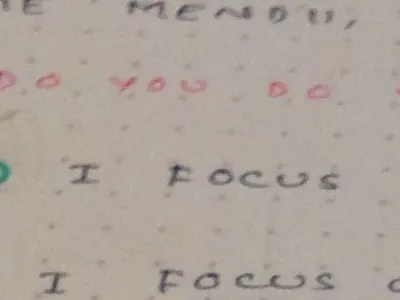 MENDU,
DO YOU DO
I FOCUS
I FOCUS